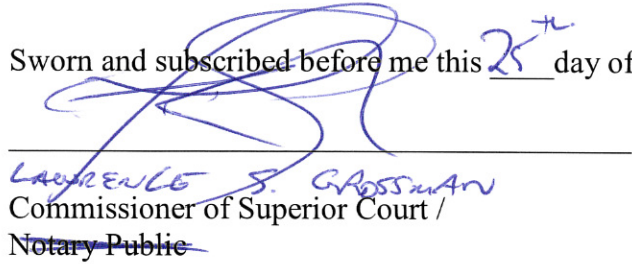 Sworn and subscribed before me this 25th day of
LAWRENCE S. GROSSMAN
Commissioner of Superior Court /
Notary Public